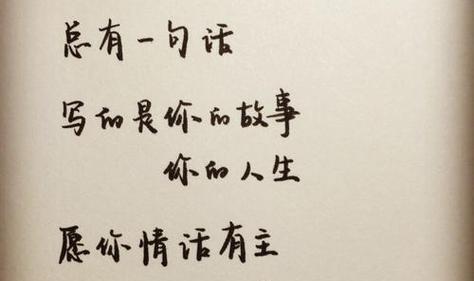 总有一句话
写的是你的故事
你的人生
愿你情话有主